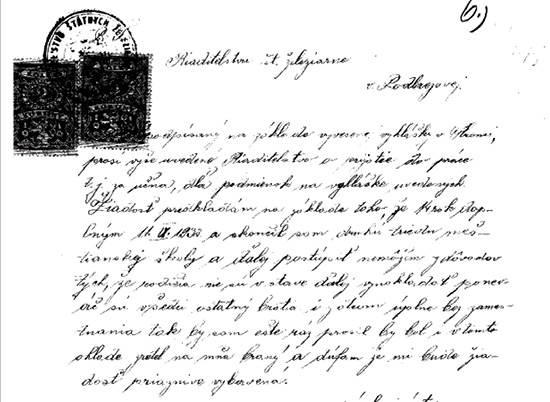 6.)
STVO ŠTÁTNYCH ŽELEZ
Riaditelstvu št. železiarne
v Podbrezovej.
odpísaný na základe vyvesenej vyhlášky v
prosí vyše uvedené Riaditelstvo o prijatie do práce
t.j. za učňa, dľa podmienok na vyhláške uvedených.
Žiadosť predkladám na základe toho, že 14 rok dop-
lním 11. 1932 a skončil som druhú triedu meš-
tianskej školy a ďalej postúpiť nemôžem z dôvodov
tých, že rodičia nie sú v stave ďalej vynakladať ponev-
áč sú všetci ostatný bratia i z otcom úplne bez zames-
tnania tak by som ešte raz prosil by bol i v tomto
ohlade zretel na mňa braný a dúfam že mi bude žia-
dosť priaznive vybavená.